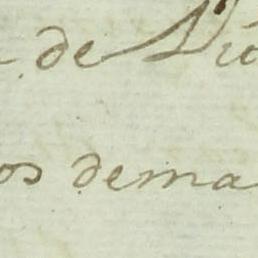 de Dio
os dema